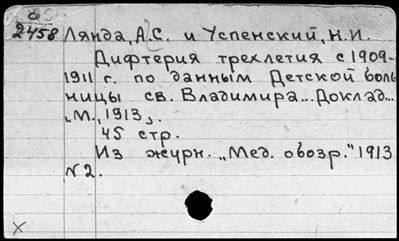 а
2458
Лянда, А.С. и Успенский, Н.И.
Дифтерия трехлетия с 1909-
1911 г. по данным Детской боль
ницы св. Владимира... Доклад...
[М., 1913].
45 стр.
Из журн. „Мед. обозр." 1913
N2.